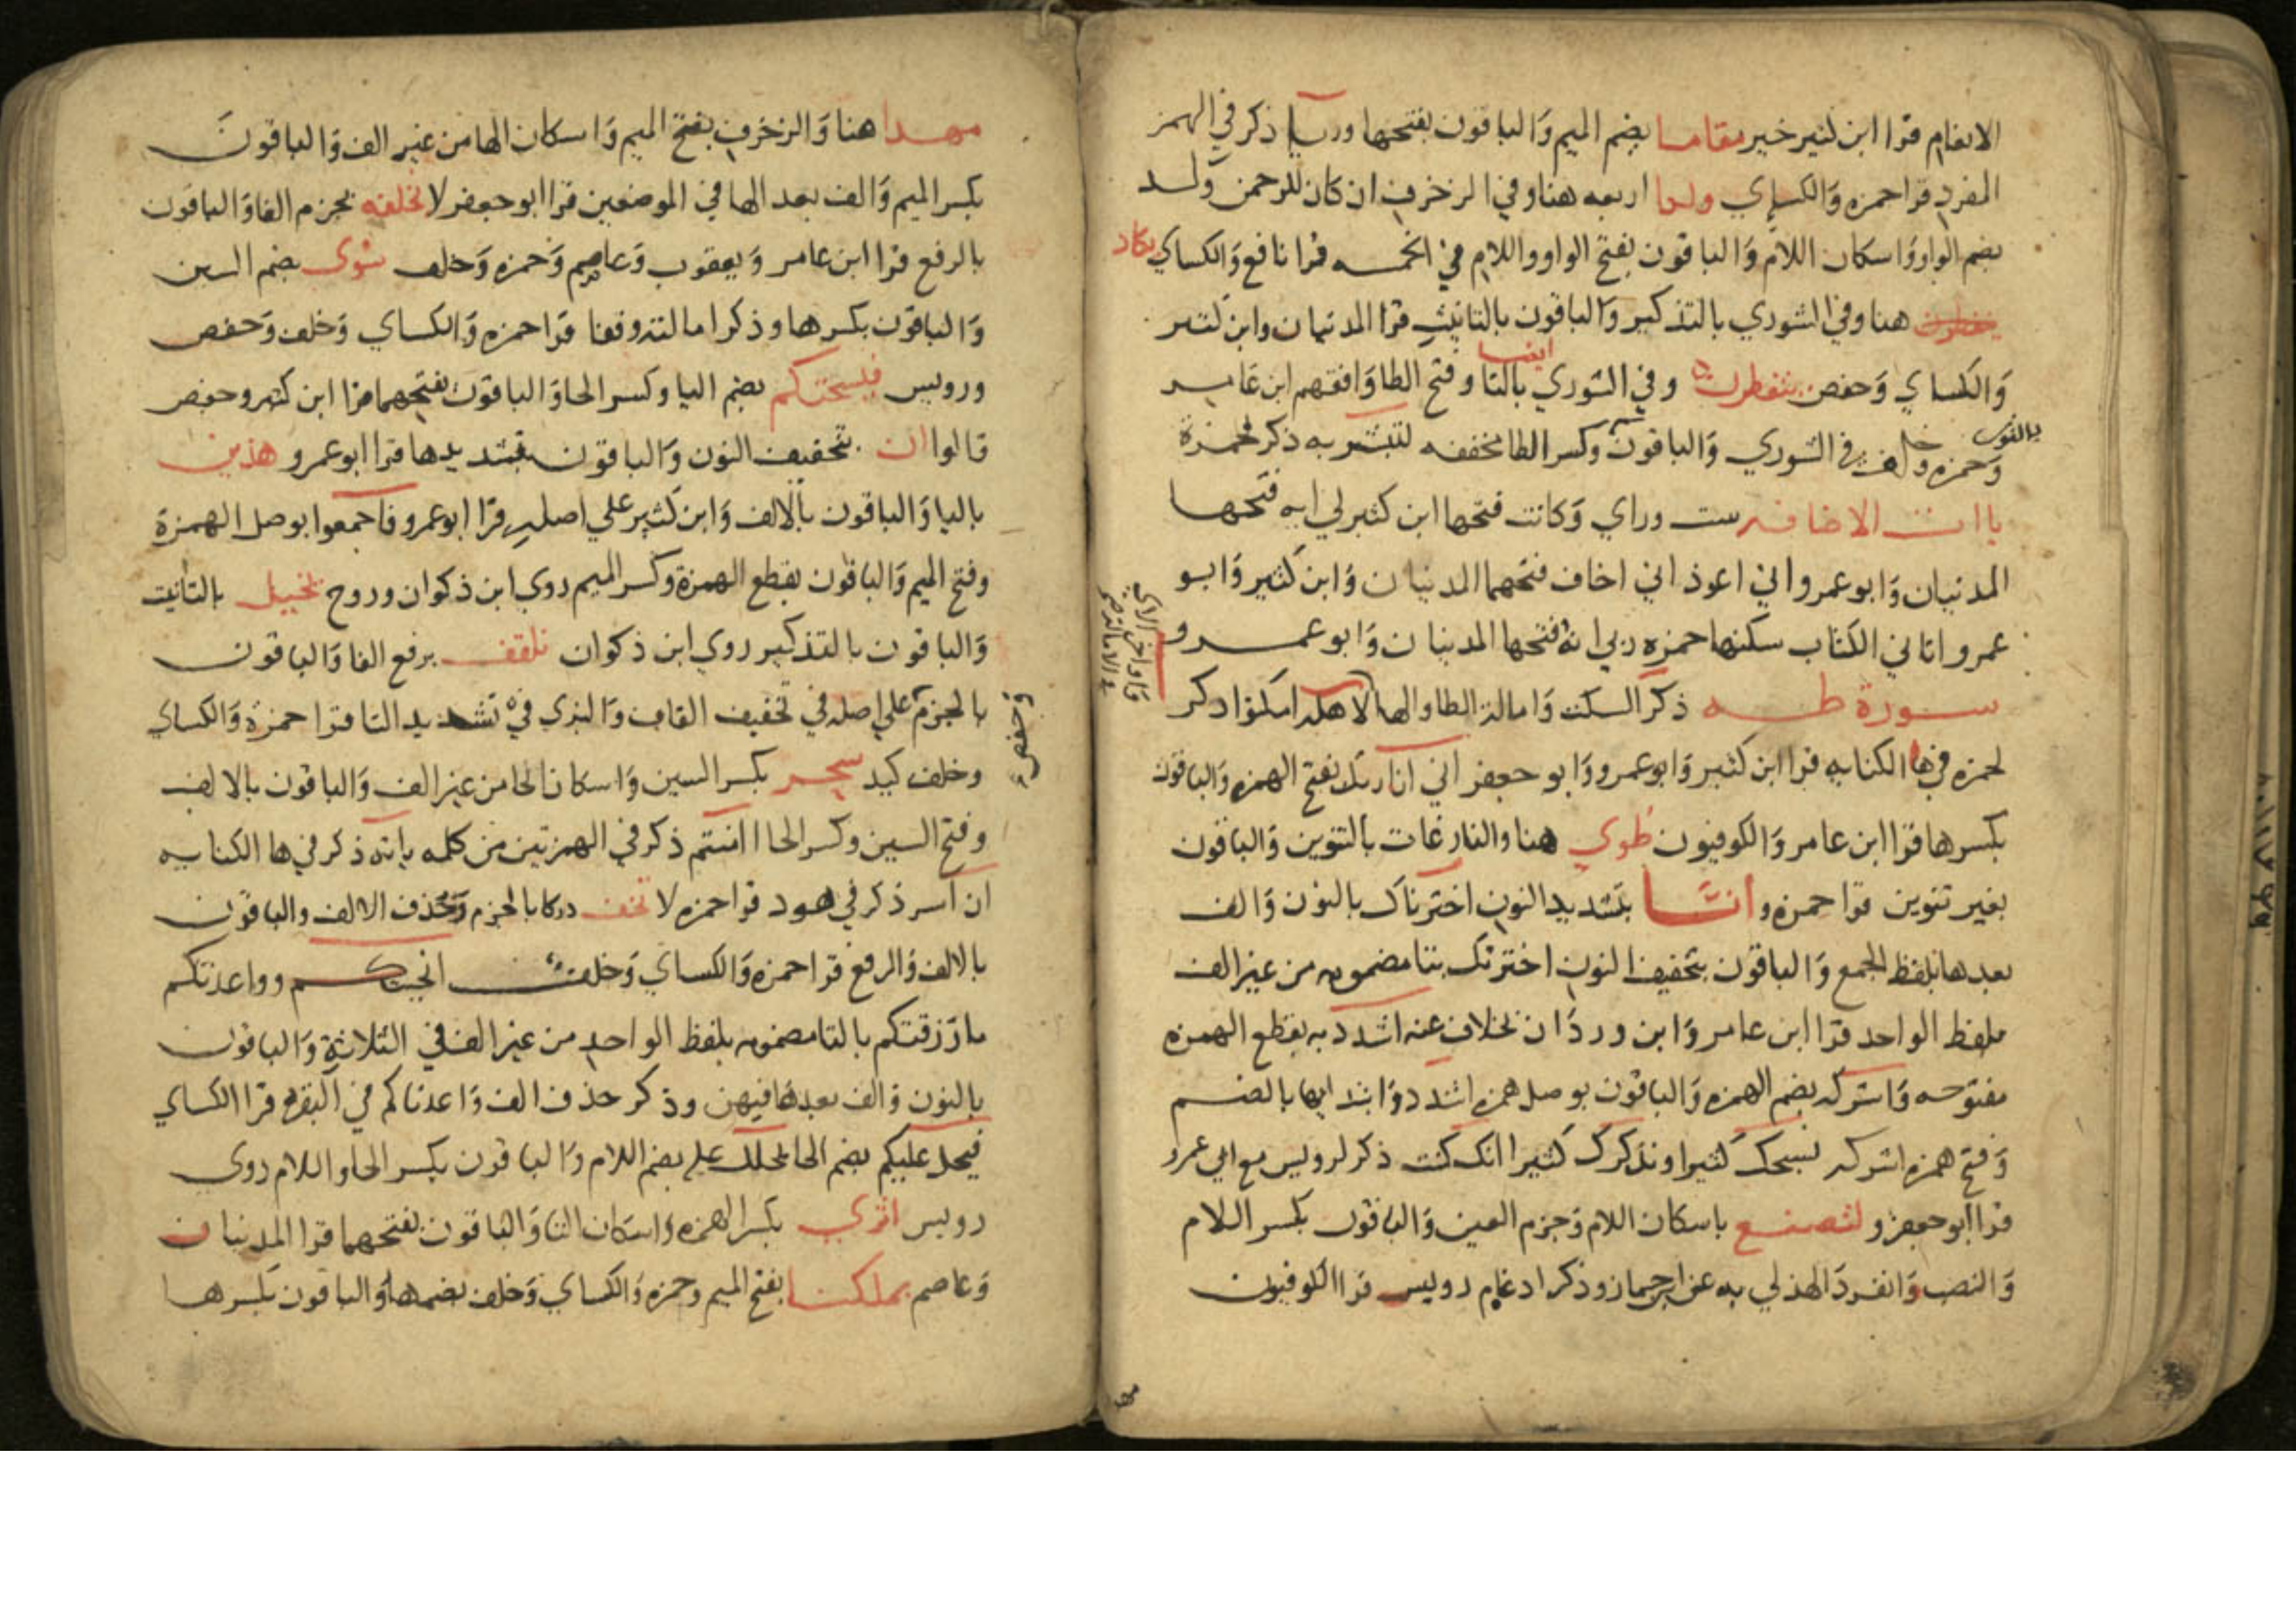 الانعام قرا ابن كثير خير مقاما بضم الميم وَالباقون بفتحها وريا ذكر في الهمز
المفرد قرا حمزه وَالكساي ولدا اربعه هنا وفي الزخرف ان كان للرحمن ولد
بضم الواو وَاسكان اللام وَالباقون بفتح الواو واللام في الخمسه قرا نافع وَالكساي يكاد
هنا وفي الشوري بالتذكير وَالباقون بالتانيث قرا المدنيان وابن كثير
وَالكساي وَحفص يتفطرن وفي الشوري بالتا وفتح الطا وَافقهم ابن عامر
ايضا
وَحمزه وخلف في الشوري وَالباقون وكسر الطا مخففه لتبشر به ذكر لحمزة
بالنون
يا ات الاضافه ست وراي وَكانت فتحها ابن كثير لي ايه فتحها
المدنيان وَابو عمرو اني اعوذ اني اخاف فتحهما المدنيان وَابن كثير وَابو
عمرو اتاني الكتاب سكنها حمزه ربي انه فتحها المدنيان وَابو عمرو
سورة طه ذكر السكت وَامالة الطا والها لاهله امكثوا ذكر
لحمزه في ها الكنايه قرا ابن كثير وَابو عمرو وَابو جعفر اني انا ربك بفتح الهمزه وَالباقون
بكسرها قرا ابن عامر وَالكوفيون طوي هنا والنازعات بالتنوين وَالباقون
بغير تنوين قرا حمزه وانا بتشديد النون اخترناك بالنون وَالف
بعدها بلفظ الجمع وَالباقون بتخفيف النون اخترتك بتا مضمومه من غير الف
بلفظ الواحد قرا ابن عامر وَابن وردان بخلاف عنه اشدد به بقطع الهمزه
مفتوحه وَاشركه بضم الهمزه وَالباقون بوصل همزه اشدد وَابتدايها بالضم
وَفتح همزه اشركه نسبحك كثيرا ونذكرك كثيرا انك كنت ذكر لرويس مع ابي عمرو
قرا ابو جعفر ولتصنع باسكان اللام وَجزم العين وَالباقون بكسر اللام
وَالنصب وَانفرد الهذلي به عن ابن جماز وذكر ادغام رويس قرا الكوفيون
مهدا هنا وَالزخرف بفتح الميم وَاسكان الها من غير الف وَالباقون
بكسر الميم وَالف بعد الها في الموضعين قرا ابو جعفر لا نخلفه بجزم الفا وَالباقون
بالرفع قرا ابن عامر وَيعقوب وَعاصم وَحمزه وَخلف سُوى بضم السين
وَالباقون بكسرها وذكر امالته وقفا قرا حمزه وَالكساي وَخلف وَحفص
ورويس فيسحتكم بضم اليا وكسر الحا وَالباقون بفتحهما قرا ابن كثير وحفص
قالوا ان بتخفيف النون وَالباقون بتشديدها قرا ابو عمرو هذين
باليا وَالباقون بالالف وَابن كثير علي اصله قرا ابو عمرو فاجمعوا بوصل الهمزة
وفتح الميم وَالباقون بقطع الهمزة وكسر الميم روي ابن ذكوان وروح تخيل بالتانيث
وَالباقون بالتذكير روي ابن ذكوان تلقف برفع الفا وَالباقون
بالجزم علي اصله في تخفيف القاف وَالبزي في تشديد التا قرا حمزة وَالكساي
وَحفص
وخلف كيد سحر بكسر السين وَاسكان الحا من غير الف وَالباقون بالالف
وفتح السين وكسر الحا اامنتم ذكر في الهمزتين من كلمه ياته ذكر في ها الكنايه
ان اسر ذكر في هود قرا حمزه لا تخف دركا بالجزم وَحذف الالف والباقون
بالالف وَالرفع قرا حمزه وَالكساي وَخلف انجيتكم وواعدتكم
ما رزقتكم بالتا مضمومه بلفظ الواحد من غير الف في الثلاثة وَالباقون
بالنون وَالف بعدها فيهن وذكر حذف الف وَاعدناكم في البقره قرا الكساي
فيحل عليكم بضم الحا يحلل عليه بضم اللام وَالباقون بكسر الحا واللام روى
رويس اثري بكسر الهمزه وَاسكان الثا وَالباقون بفتحهما قرا المدنيان
وَعاصم بملكنا بفتح الميم وحمزه وَالكساي وَخلف بضمها وَالباقون بكسرها